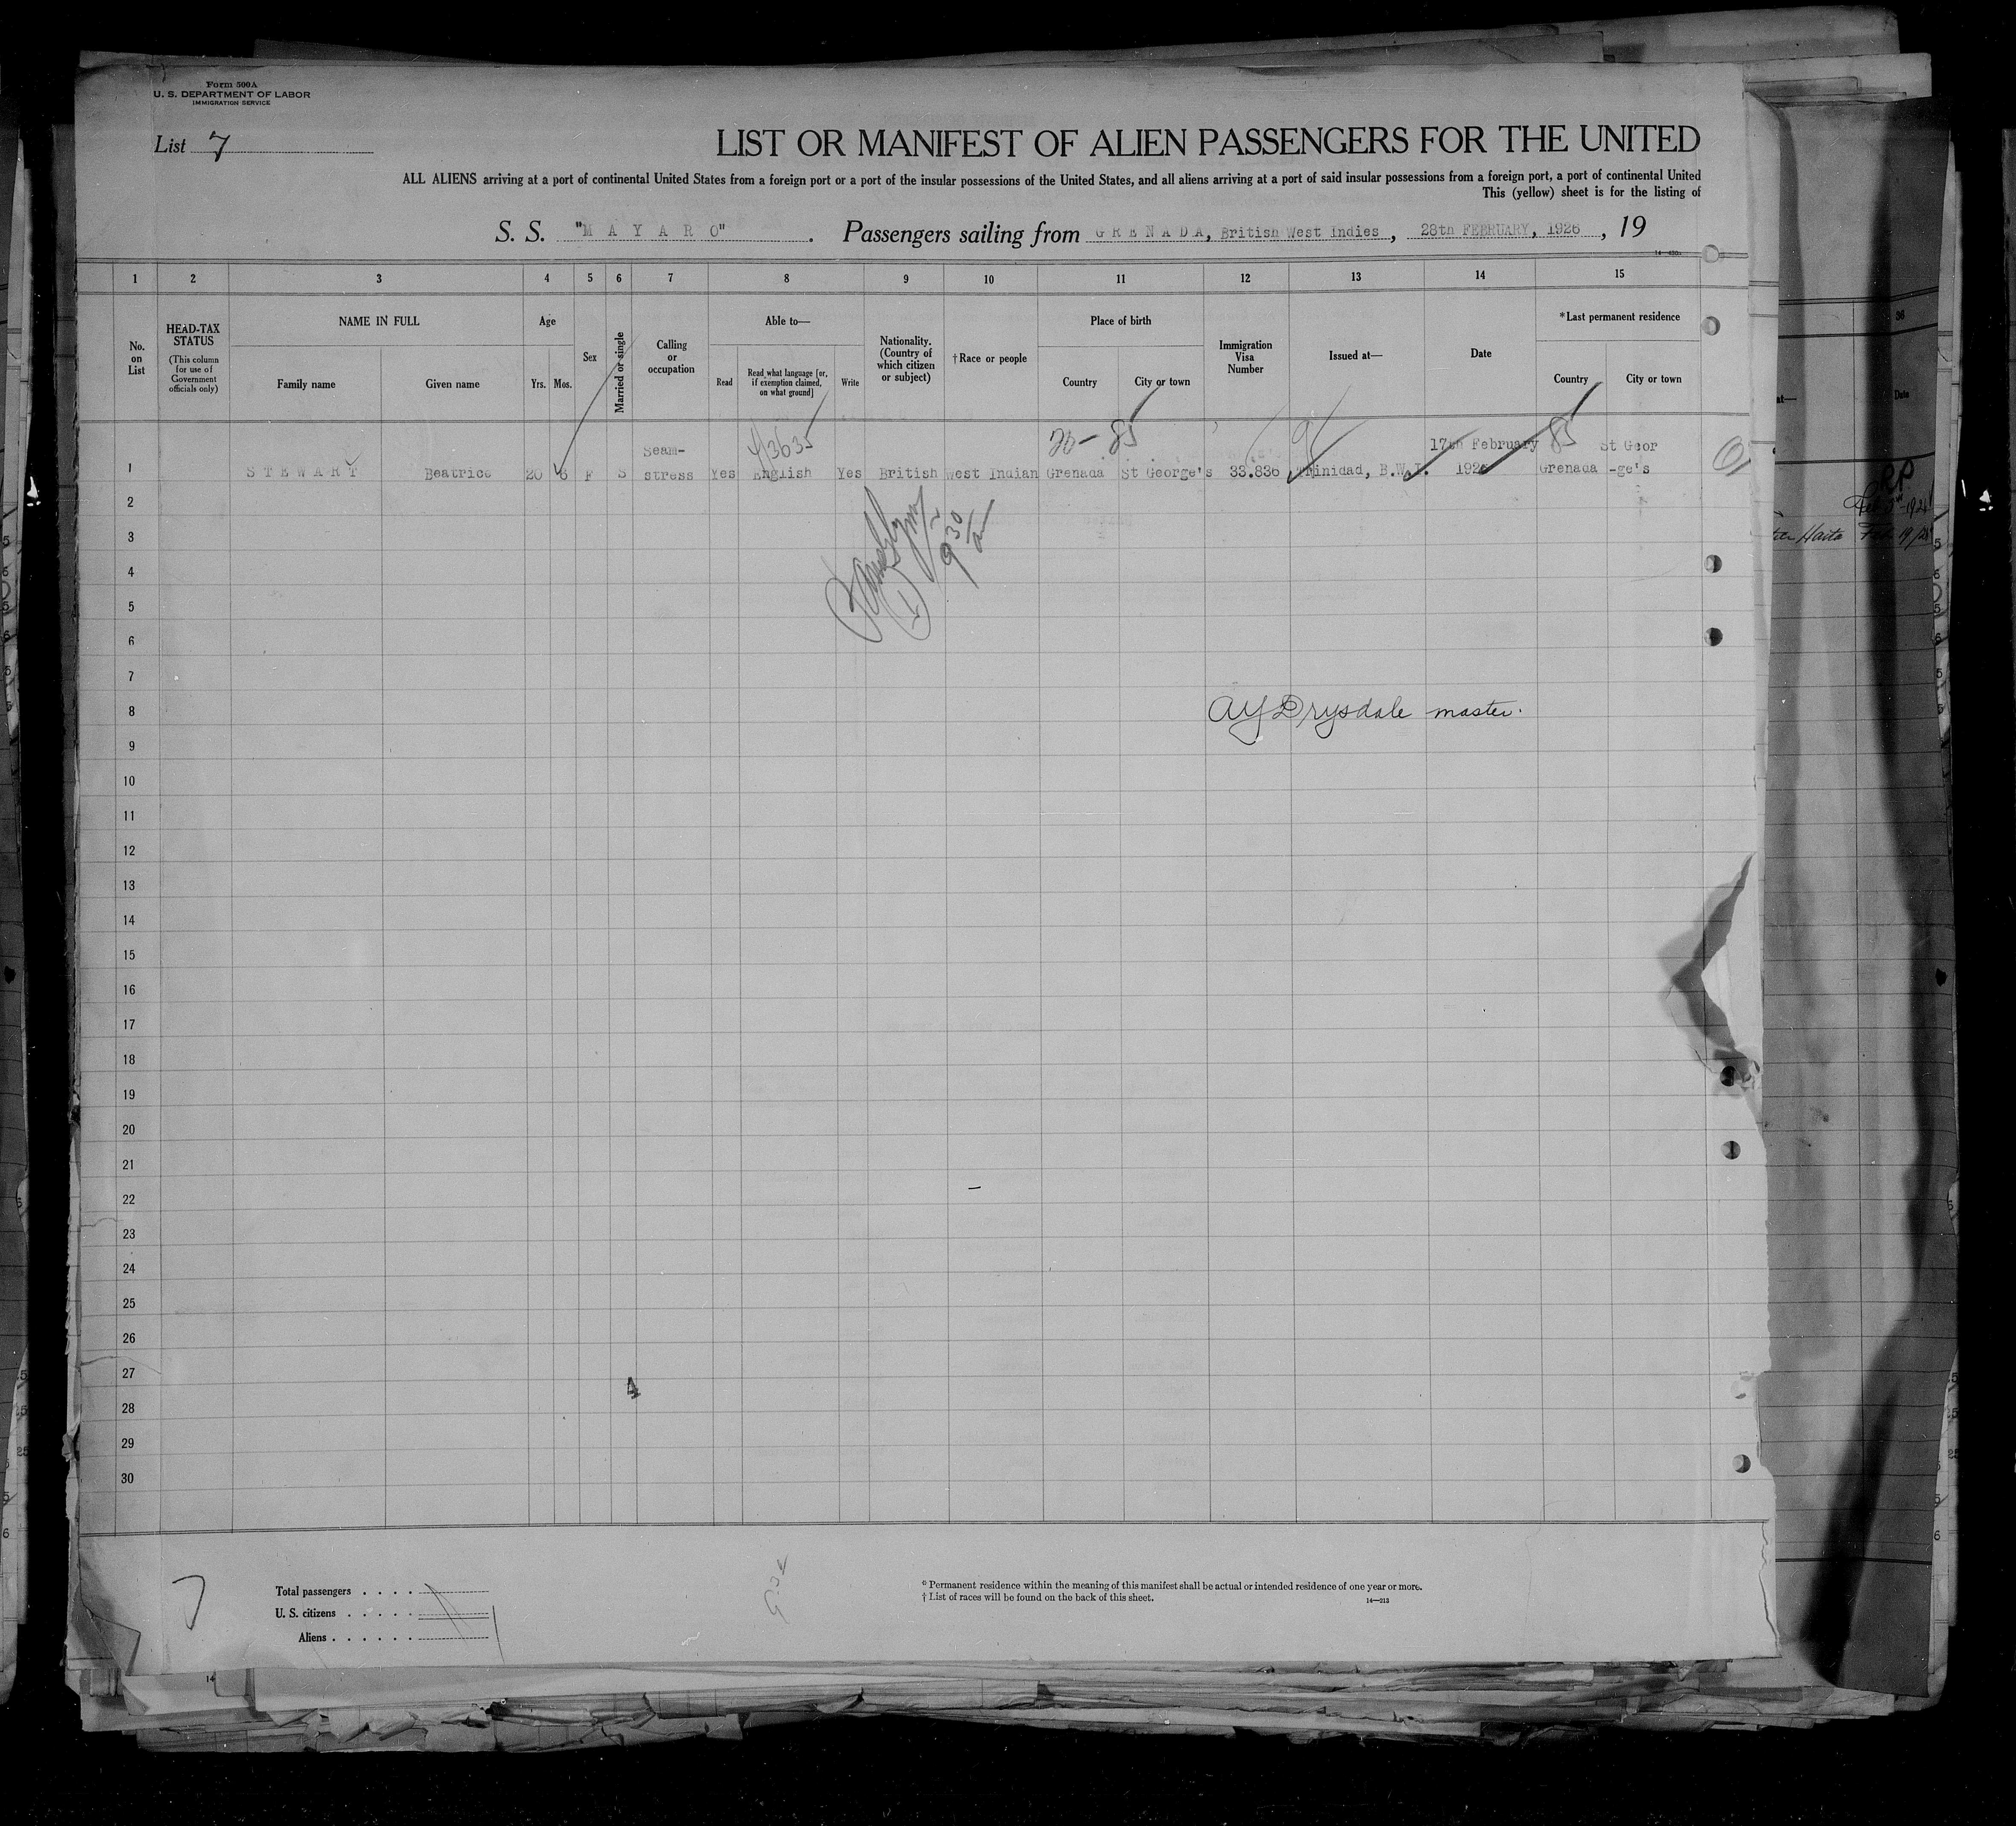 Form 500A
U. S. DEPARTMENT OF LABOR
IMMIGRATION SERVICE
List 7
LIST OR MANIFEST OF ALIEN PASSENGERS FOR THE UNITED
ALL ALIENS arriving at a port of continental United States from a foreign port or a port of the insular possessions of the United States, and all aliens arriving at a port of said insular possessions from a foreign port, a port of continental United
This (yellow) sheet is for the listing of
S. S. "MAYARO". Passengers sailing from GRENADA, British West Indies, 28th FEBRUARY, 1926, 19
1 2 3 4 5 6 7 8 9 10 11 12 13 14 15
No. on List
HEAD-TAX STATUS
(This column for use of Government officials only)
NAME IN FULL
Family name
Given name
Age
Yrs.
Mos.
Sex
Married or single
Calling or occupation
Able to—
Read
Read what language [or, if exemption claimed, on what ground]
Write
Nationality. (Country of which citizen or subject)
†Race or people
Place of birth
Country
City or town
Immigration Visa Number
Issued at—
Date
*Last permanent residence
Country
City or town
4/3635
20- 85
85
1 STEWART Beatrice 20 6 F S Seam-stress Yes English Yes British West Indian Grenada St George's 33.836 Trinidad, B.W.I. 17th February 1926 Grenada St Geor-ge's
2
9 30 am
3
4
5
6
7
8
AY Drysdale master.
9
10
11
12
13
14
15
16
17
18
19
20
21
22
23
24
25
26
27
28
29
30
7
Total passengers
U. S. citizens
Aliens
* Permanent residence within the meaning of this manifest shall be actual or intended residence of one year or more.
† List of races will be found on the back of this sheet.
14—213
36
Date